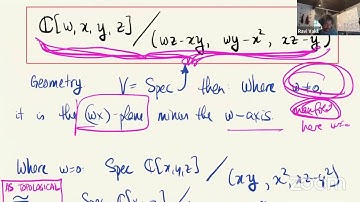 Ravi Vakil
ℂ[w, x, y, z] / (wz-xy, wy-x², xz-y²)
Geometry V = Spec then: Where w≠0,
it is the (wx)-plane minus the w-axis.
here w=
Where w=0: Spec ℂ[x,y,z] / (xy, x², xz-y²)
AS TOPOLOGICAL
≅ Spec
zoom